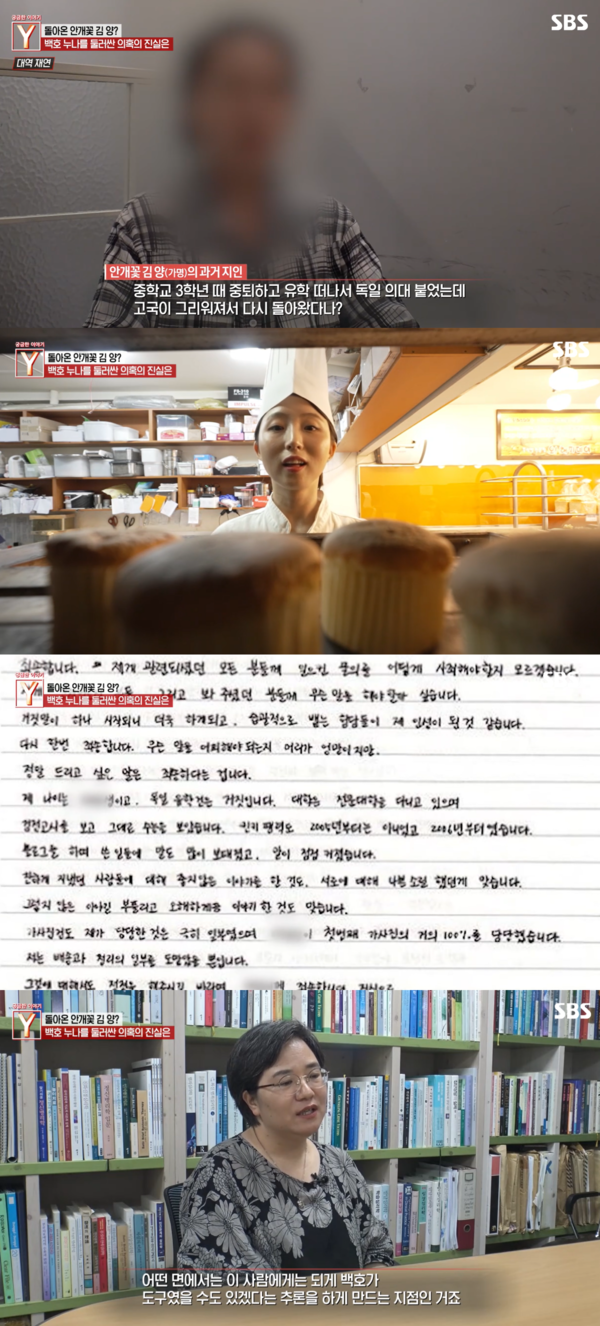 궁금한 이야기
Y
돌아온 안개꽃 김 양?
백호 누나를 둘러싼 의혹의 진실은
대역 재연
SBS
안개꽃 김 양(가명)의 과거 지인
중학교 3학년 때 중퇴하고 유학 떠나서 독일 의대 붙었는데
고국이 그리워져서 다시 돌아왔다나?
궁금한 이야기
Y
돌아온 안개꽃 김 양?
백호 누나를 둘러싼 의혹의 진실은
SBS
죄송합니다. 제게 관련되셨던 모든 분들께 일으킨 물의를 어떻게 사죄해야할지 모르겠습니다.
궁금한 이야기
Y
돌아온 안개꽃 김 양?
백호 누나를 둘러싼 의혹의 진실은
그리고 봐 주셨던 분들께 무슨 말을 해야 할까 싶습니다.
거짓말이 하나 시작되니 더욱 하게되고, 습관적으로 뱉는 말들이 제 인생이 된 것 같습니다.
다시 한번 죄송합니다. 무슨 말을 어찌해야 되는지 머리가 엉망이지만,
정말 드리고 싶은 말은 죄송하다는 겁니다.
제 나이는 이고, 독일 유학건은 거짓입니다. 대학은 전문대학을 다니고 있으며
검정고시를 보고 그대로 수능을 보았습니다. 경력도 2005년부터는 아니었고 2006년부터였습니다.
블로그를 하며 쓴 일들에 말도 많이 보태졌고, 일이 점점 커졌습니다.
친하게 지냈던 사람들에 대해 좋지않은 이야기를 한 것도, 서로에 대해 나쁜소릴 했던게 맞습니다.
그렇지 않은 이야길 부풀리고 오해하게끔 이야기 한 것도 맞습니다.
제가 담당한 것은 극히 일부였으며 이 첫번째 거의 100%를 담당했습니다.
저는 배송과 정리의 일부를 도맡았을 뿐입니다.
궁금한 이야기
Y
돌아온 안개꽃 김 양?
백호 누나를 둘러싼 의혹의 진실은
SBS
어떤 면에서는 이 사람에게는 되게 백호가
도구였을 수도 있겠다는 추론을 하게 만드는 지점인 거죠